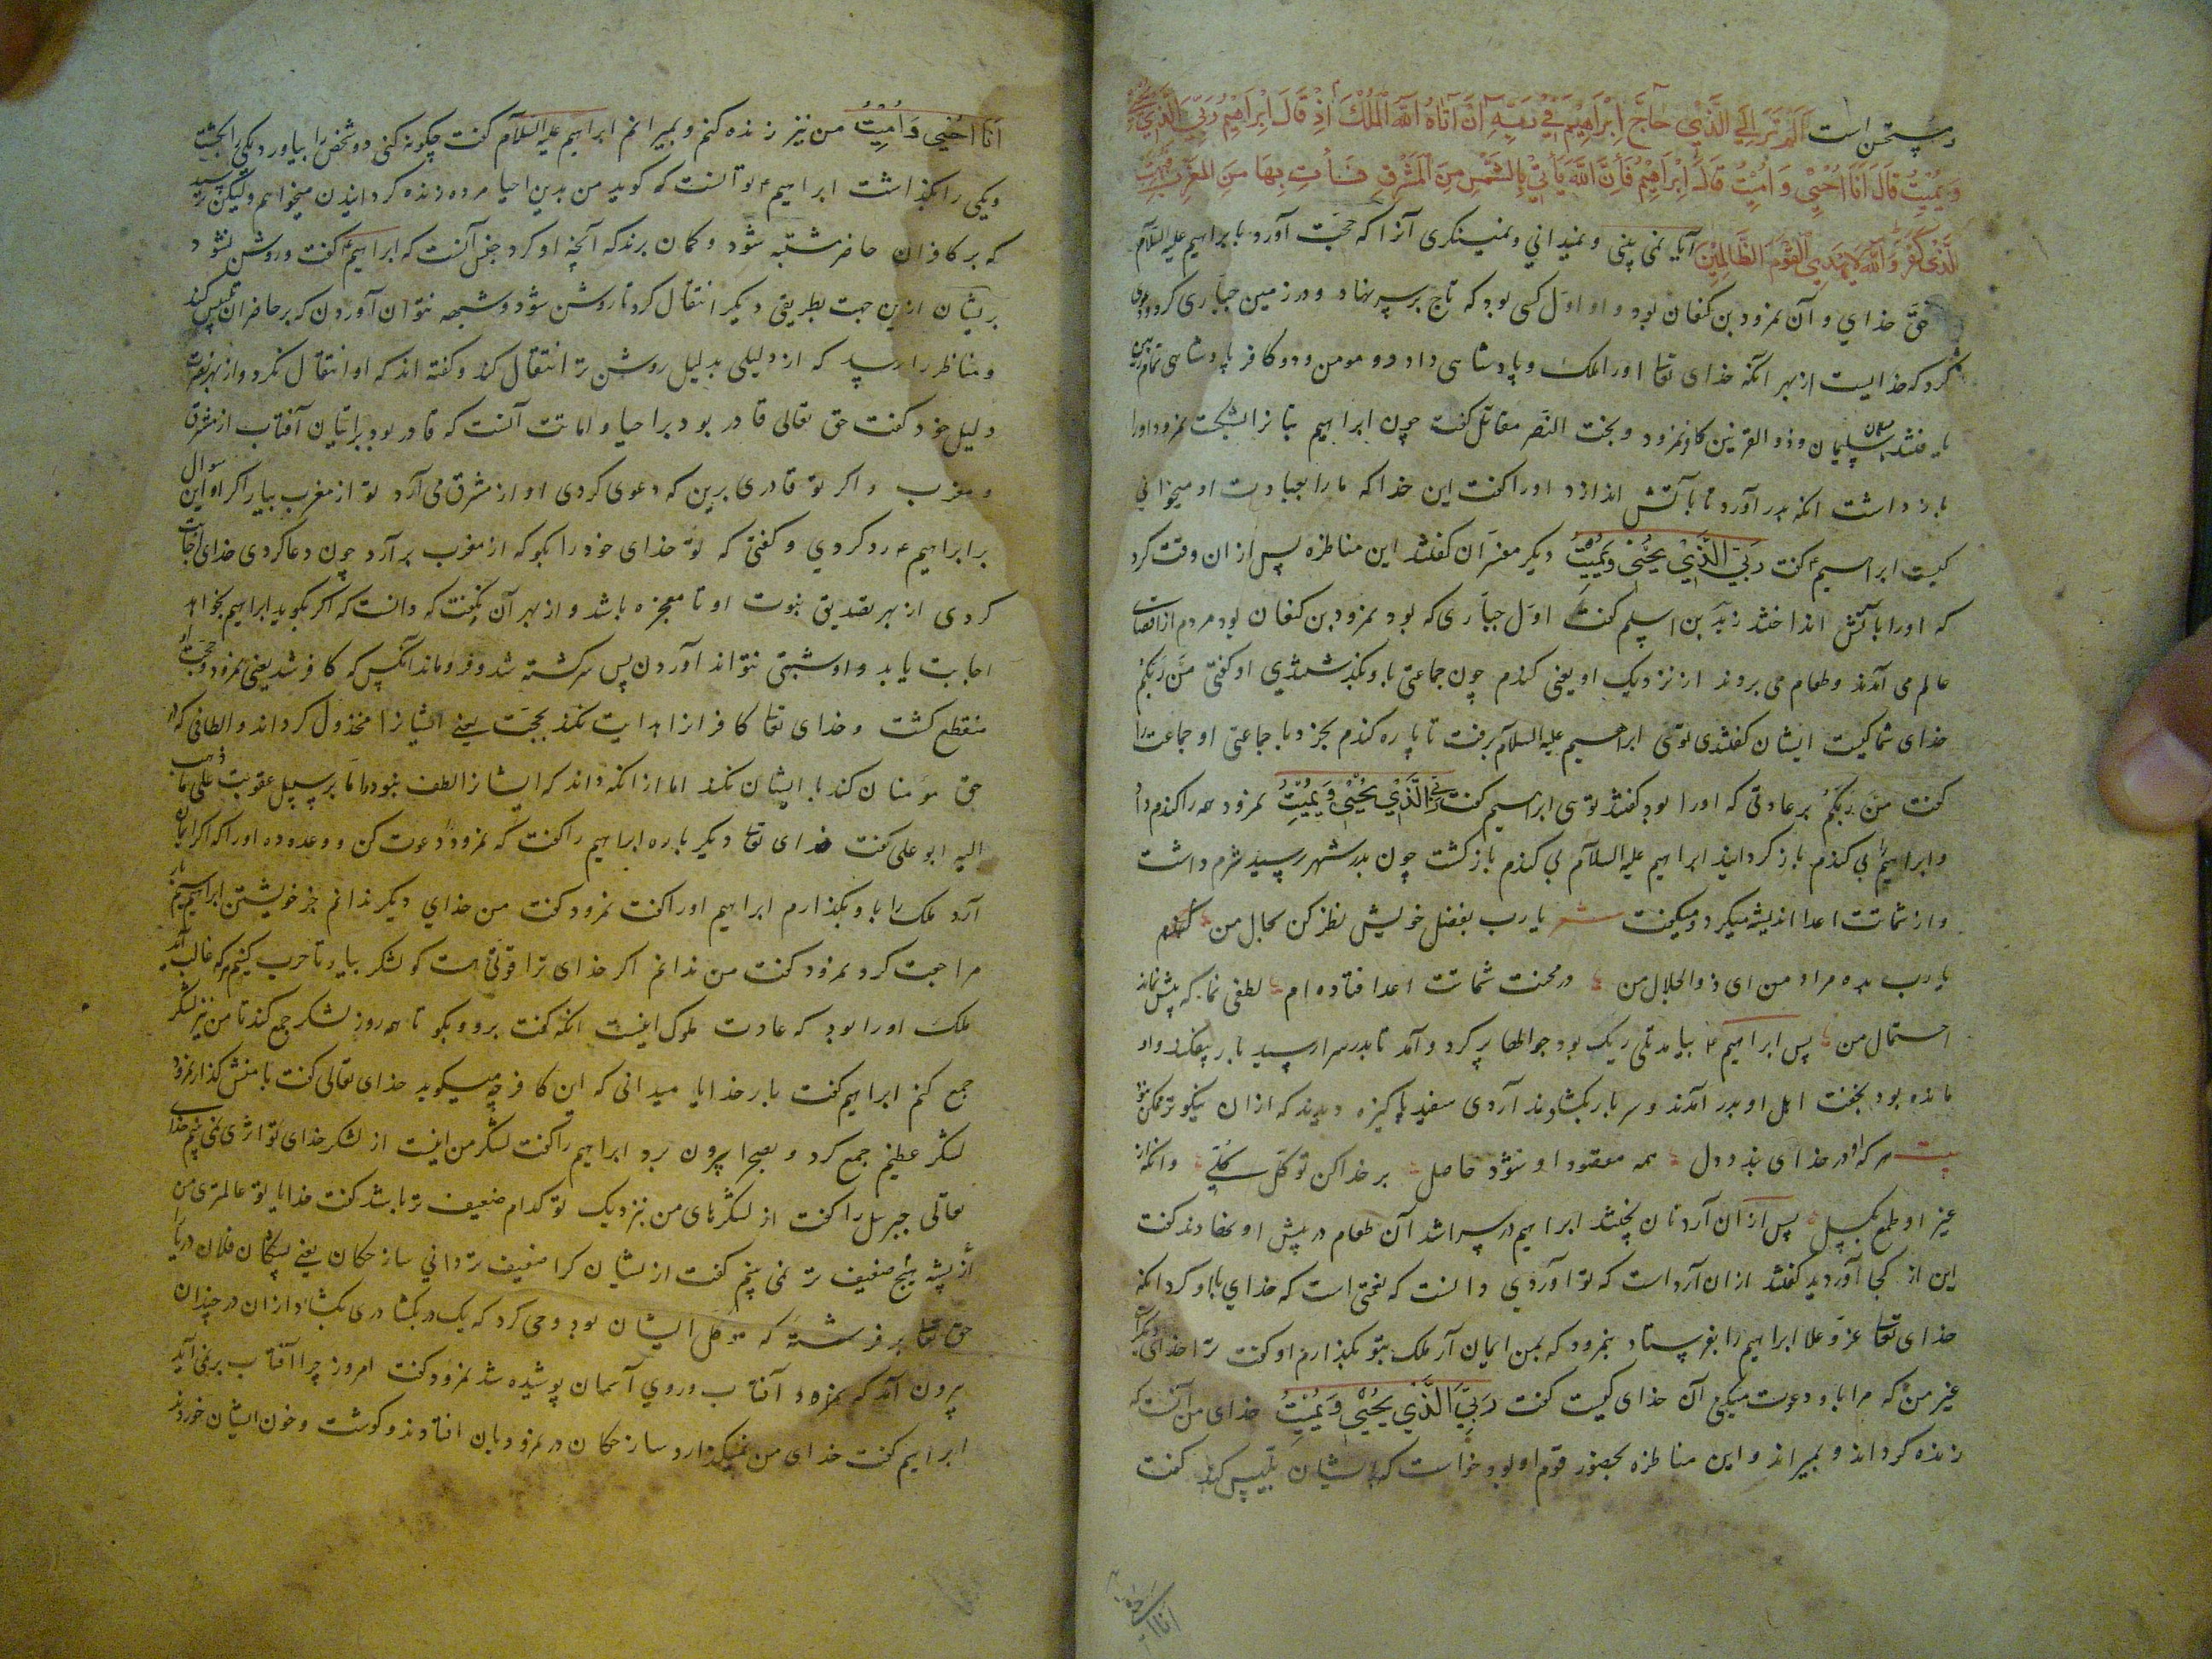 درستخن است أَلَمْ تَرَ إِلَى الَّذِي حَاجَّ إِبْرَاهِيمَ فِي رَبِّهِ أَنْ آتَاهُ اللَّهُ الْمُلْكَ إِذْ قَالَ إِبْرَاهِيمُ رَبِّيَ الَّذِي يُحْيِي
وَيُمِيتُ قَالَ أَنَا أُحْيِي وَأُمِيتُ قَالَ إِبْرَاهِيمُ فَإِنَّ اللَّهَ يَأْتِي بِالشَّمْسِ مِنَ الْمَشْرِقِ فَأْتِ بِهَا مِنَ الْمَغْرِبِ فَبُهِتَ
الَّذِي كَفَرَ وَاللَّهُ لَا يَهْدِي الْقَوْمَ الظَّالِمِينَ آیا نمی بینی و نمیدانی و نمینکری آنرا که حجّت آورد با براهیم علیه السلام
حقّ خدای و آن نمرود بن کنعان بود و او اوّل کسی بود که تاج بر سر نهاد و در زمین جبّاری کرد و دعوی
کرد که خدایست از بهر آنکه خدای تعا اورا ملک و پادشاهی داد دو مومن و دو کافر پادشاهی تمام زمین
یافتند سلیمان و ذو القرنین کافر نمرود و بخت النصر مقاتل کفت چون ابراهیم بتانرا بشکست نمرود اورا
بازداشت آنکه بدر آورد تا بآتش اندازد اورا کفت این خدا که ما را بعبادت او میخوانی
کیست ابراهیم ع کفت رَبِّيَ الَّذِي يُحْيِي وَيُمِيتُ دیکر مفسّران کفتند این مناظره پس از ان وقت کرد
که اورا بآتش انداختند زید بن اسلم کفت اوّل جبّاری که بود نمرود بن کنعان بود مردم از اقصای
عالم می آمدند و طعام می بردند از نزدیک او یعنی کندم چون جماعتی باو بکذشتندی او کفتی مَن رَبُّکُم
خدای شما کیست ایشان کفتندی توئی ابراهیم علیه السلام برفت تا پاره کندم بخرد با جماعتی او جماعت را
کفت مَن رَبُّکُم بر عادتی که اورا بود کفتند توی ابراهیم کفت رَبِّيَ الَّذِي يُحْيِي وَيُمِيتُ نمرود همه را کندم داد
و ابراهیم را بی کندم باز کردانید ابراهیم علیه السلام بی کندم بازکشت چون بدر شهر رسید شرم داشت
و از شماتت اعدا اندیشه میکرد و میکفت شعر یا رب بفضل خویش نظر کن بحال من
یا رب بده مراد من ای ذوالجلال من در محنت شماتت اعدا فتاده ام لطفی نما که بیش نماند
احتمال من پس ابراهیم ع بیامد تلی ریک بود جوالها پر کرد و آمد تا بدر سرا رسید بار بیفکند و او
مانده بود بخفت اهل او بدر آمدند و سر بار بکشادند آردی سفید پاکیزه دیدند که از ان نیکوتر ممکن نبود
بیت هر که او در خدای بندد دل همه مقصود او شود حاصل بر خدا کن توکّل کلّی وانکه از
غیر او طمع بکسل پس از ان آرد نان پختند ابراهیم در سرا شد آن طعام در پیش او نهادند کفت
این از کجا آوردید کفتند از ان آرد است که تو آوردی دانست که نعمتی است که خدای با او کرد آنکه
خدای تعا عزّ و علا ابراهیم را بفرستاد بنمرود که بمن ایمان آر ملک بتو بکذارم او کفت ترا خدای دیکر است
غیر من که مرا باو دعوت میکنی آن خدای کیست کفت رَبِّيَ الَّذِي يُحْيِي وَيُمِيتُ خدای من آنست که
زنده کرداند و بمیراند و این مناظره بحضور قوم او بود خواست که بر ایشان تلبیس کند کفت
أَنَا أُحْيِي وَأُمِيتُ من نیز زنده کنم و بمیرانم ابراهیم علیه السلام کفت چکونه کنی دو شخص را بیاورد یکی را بکشت
و یکی را بکذاشت ابراهیم ع توانست که کوید من بدین احیا مرده زنده کردانیدن میخواهم ولیکن ترسید
که بر کافران حاضر مشتبه شود و کمان برند که آنچه او کرد جنس آنست که ابراهیم ع کفت و روشن نشود
بریشان از ین جهت بطریقی دیکر انتقال کرد تا روشن شود و شبهه نتوان آوردن که بر حاضران تلبیس کند
و مناظر را رسد که از دلیلی بدلیل روشن تر انتقال کند و کفته اند که او انتقال نکرد و از بهر نصرت
دلیل خود کفت حق تعالی قادر بود بر احیا و اماتت آنست که قادر بود بر اتیان آفتاب از مشرق
و مغرب و اکر تو قادری برین که دعوی کردی او از مشرق می آرد تو از مغرب بیار اکر او این سوال
بر ابراهیم ع رد کردی و کفتی که تو خدای خود را بکو که از مغرب بر آرد چون دعا کردی خدای اجابت
کردی از بهر تصدیق نبوت او تا معجزه باشد و از بهر آن نکفت که دانست که اکر بکوید ابراهیم بخواهد
اجابت یابد و او شبهتی نتواند آوردن پس سرکشته شد و فرو ماند آنکس که کافر شد یعنی نمرود و حجت او
منقطع کشت و خدای تعا کافرانرا هدایت نکند بحجّت یعنی ایشانرا مخذول کرداند و الطافی که در
حق مؤمنان کند با ایشان نکند اما از آنکه داند که ایشانرا لطف نبود و امّا بر سبیل عقوبت علی ما ذهب
الیه ابو علی کفت خدای تعا دیکر باره ابراهیم را کفت که نمرود را دعوت کن و وعده ده اورا که اکر ایمان
آرد ملک را باو بکذارم ابراهیم اورا کفت نمرود کفت من خدای دیکر ندانم جز خویشتن ابراهیم باز
مراجعت کرد نمرود کفت من ندانم اکر خدای ترا قوّتی است کو لشکر بیار تا حرب کنیم هر که غالب آید
ملک اورا بود که عادت ملوک اینست آنکه کفت برو و بکو تا سه روز لشکر جمع کند تا من نیز لشکر
جمع کنم ابراهیم کفت بار خدایا میدانی که این کافر چه میکوید خدای تعالی کفت با منش کذار نمرود
لشکر عظیم جمع کرد و بصحرا بیرون برد ابراهیم را کفت لشکر من اینست از لشکر خدای تو اثری نمی بینم خدای
تعالی جبرئیل را کفت از لشکرهای من نزدیک تو کدام ضعیف تر باشد کفت خدایا تو عالمتری من
از پشه هیچ ضعیف تر نمی بینم کفت از یشان کرا ضعیف تر دانی سارخکان یعنی پشکان فلان دریا
حق تعا بر فرشته که موکل ایشان بود وحی کرد که یک در بکشا دری بکشاد از ان در چندان
بیرون آمد که نمرود آفتاب و روی آسمان پوشیده شد نمرود کفت امروز چرا آفتاب بر نمی آید
ابراهیم کفت خدای من نمیکذارد سارخکان در نمرودیان افتادند و کوشت و خون ایشان خوردند